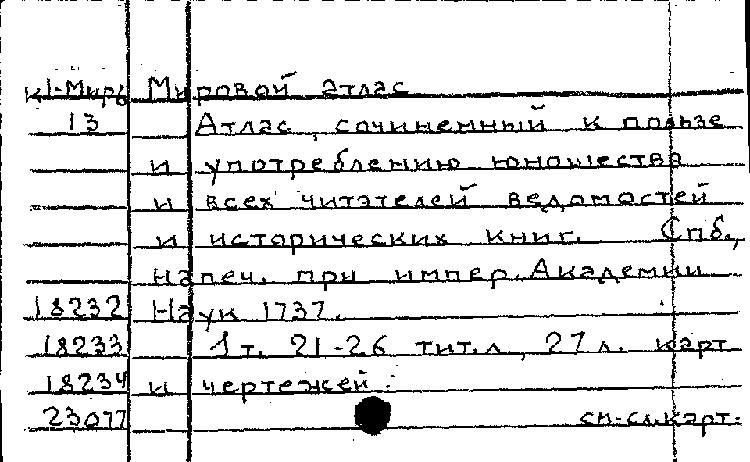 К1-Миръ Мировой атлас
13 Атлас, сочиненный к пользе
и употреблению юношества
и всех читателей ведомостей
и исторических книг. Спб.,
напеч. при импер. Академии
18232 Наук 1737.
18233 1 т. 21-26 тит.л, 27 л. карт
18234 и чертежей.
23077 сп-сл.карт.